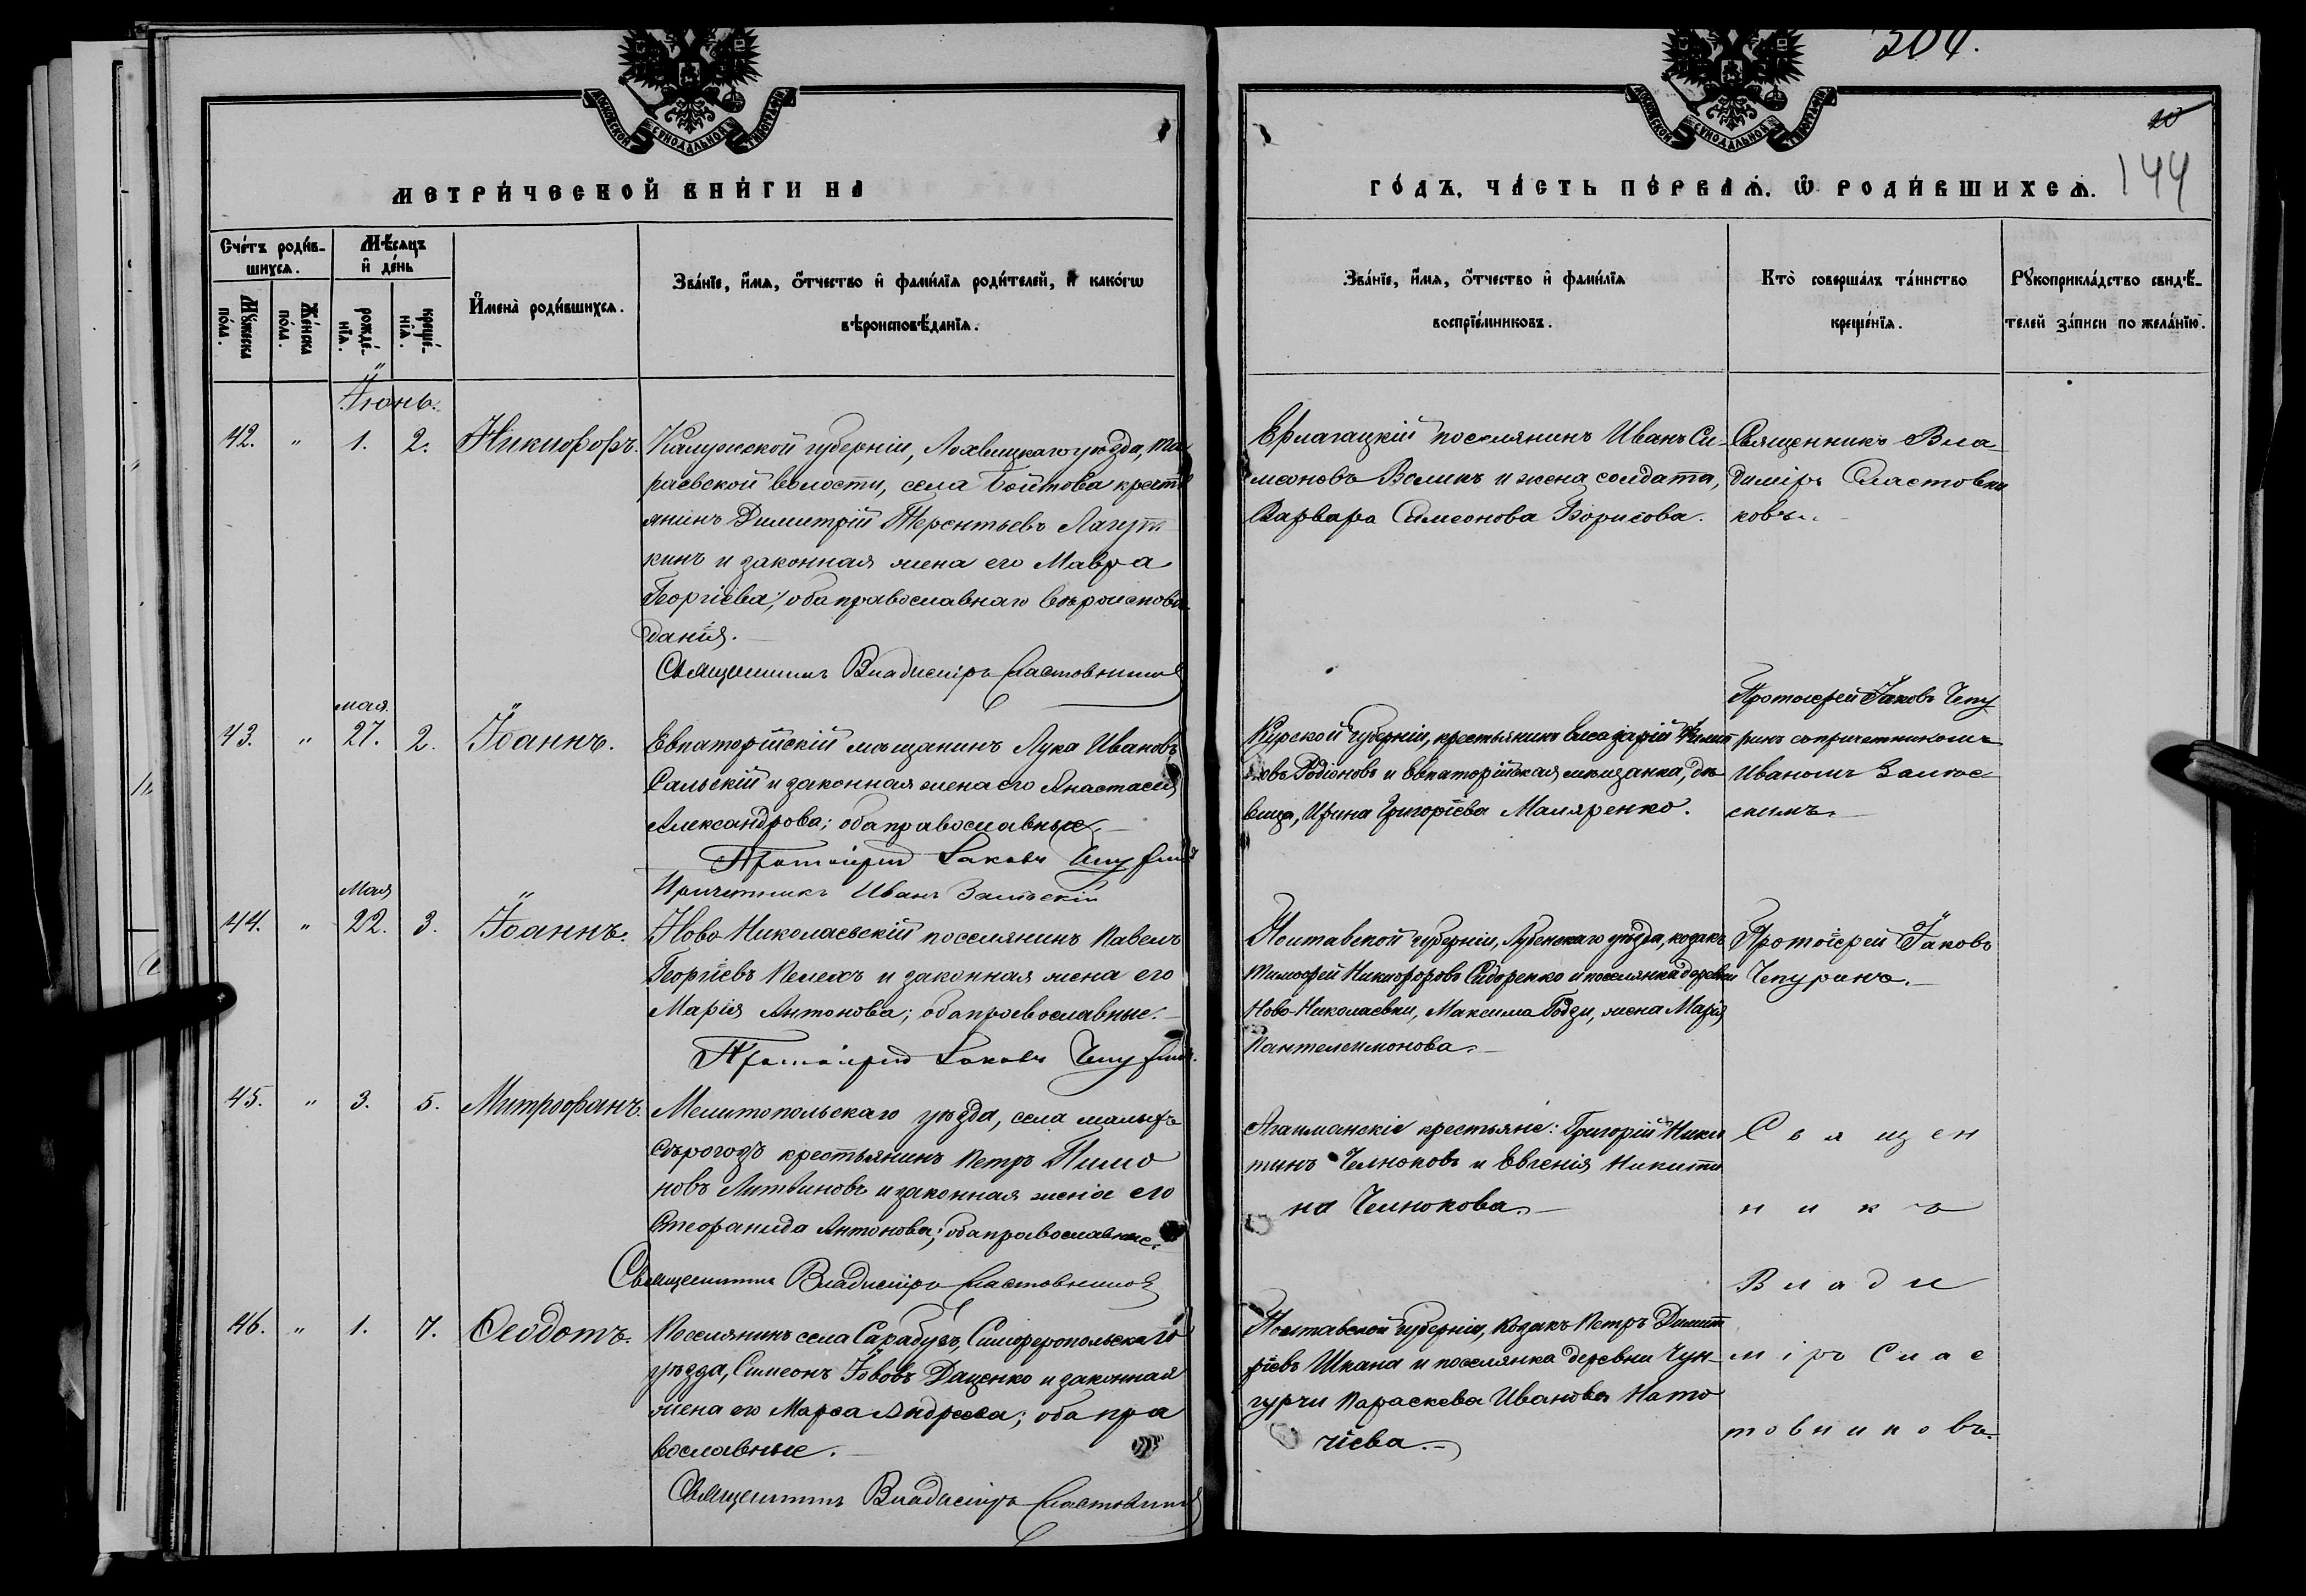 304.
144
МОСКОВСКОЙ СУНОДАЛЬНОЙ ТИПОГРАФІИ
МОСКОВСКОЙ СУНОДАЛЬНОЙ ТИПОГРАФІИ
МЕТРИ́ЧЕСКОЙ КНИ́ГИ НА
ГО́ДЪ, ЧА́СТЬ ПЕ́РВАѦ, Ѡ РОДИ́ВШИХСѦ.
Сче́тъ роди́в-
шихсѧ.
Мѣ́сѧцъ
и҆ де́нь
Мꙋ́жеска
по́ла.
Же́нска
по́ла.
рожде́-
нїѧ.
креще́-
нїѧ.
И҆мена̀ роди́вшихсѧ.
Зва́нїе, и҆́мѧ, ѻ҆́тчество и҆ фами́лїѧ роди́телей, и҆ како́гѡ
вѣроисповѣ́данїѧ.
Зва́нїе, и҆́мѧ, ѻ҆́тчество и҆ фами́лїѧ
воспрїе́мниковъ.
Кто̀ соверша́лъ та́инство
креще́нїѧ.
Рꙋкоприкла́дство свидѣ́-
телей за́писи по жела́нїю.
Іюнь.
42. " 1. 2. Никифоръ.
Калужской губерніи, Лохвицкаго уѣзда,
раевской волости, села Бойтова крестья
янинъ Димитрій Терентьевъ
кинъ и законная жена его Мавра
Георгіева; оба православнаго вѣроисповѣ-
данія.
Священникъ Владиміръ Сластовниковъ
Ерлагацкій поселянинъ Иванъ Си-
меоновъ Великъ и жена солдата,
Варвара Симеонова Борисова.
Священникъ Вла
диміръ Сластовни
ковъ.
мая
43. " 27. 2. Іоаннъ.
Евпаторійскій мѣщанинъ Лука Ивановъ
Сальскій и законная жена его Анастасія
Александрова; оба православные.
Протоіерей Іаковъ Чепуринъ
Причетникъ Иванъ
Курской губерніи, крестьянинъ
новъ Родіоновъ и Евпаторійская мѣщанка, дѣ
вица, Ирина Григоріева Маляренко.
Протоіерей Іаковъ Чепу
ринъ съ причетникомъ
Иваномъ
скимъ.
Мая
44. " 22. 3. Іоаннъ.
Ново-Николаевскій поселянинъ Павелъ
Георгіевъ Пелехъ и законная жена его
Марія Антонова; оба православные.
Протоіерей Іаковъ Чепуринъ.
Полтавской губерніи, Лубенскаго уѣзда, козакъ
Тимофей Никифоровъ Сидоренко и поселянка деревни
Ново-Николаевки, Максима Годзи, жена Марія
Пантелеимонова.
Протоіерей Іаковъ
Чепуринъ.
45. " 3. 5. Митрофанъ.
Мелитопольскаго уѣзда, села малыхъ
Сѣрогозъ крестьянинъ Петръ Пимо
новъ Литвиновъ и законная жена его
Стефанида Антонова; оба православные.
Священникъ Владиміръ Сластовниковъ
Агайманскіе крестьяне: Григорій Ники
тинъ Челноковъ и Евгенія Никити
на Челнокова.
Священ
никъ
Влади
міръ Слас
товниковъ.
46. " 1. 7. Ѳеодотъ.
Поселянинъ села Сарабузъ, Симферопольскаго
уѣзда, Симеонъ Іововъ Даценко и законная
жена его Марѳа Андреева; оба пра
вославные.
Священникъ Владиміръ Сластовниковъ
Полтавской губерніи, Козакъ Петръ Димит
ріевъ Шкана и поселянка деревни Чун-
гурчи Параскева Иванова Нато
чіева.